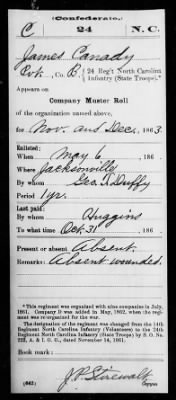 (Confederate.)
C 24 N. C.
James Canady
Pvt., Co. B, 24 Reg't North Carolina Infantry (State Troops).*
Appears on
Company Muster Roll
of the organization named above,
for Nov. and Dec., 1863.
Enlisted:
When May 6, 186
Where Jacksonville
By whom Geo. T. Duffy
Period 1 yr.
Last paid:
By whom Huggins
To what time Oct. 31, 186
Present or absent Absent.
Remarks: Absent wounded.
*This regiment was organized with nine companies in July, 1861. Company D was added in May, 1862, when the regiment was re-organized for the war.
The designation of the regiment was changed from the 14th Regiment North Carolina Infantry (Volunteers) to the 24th Regiment North Carolina Infantry (State Troops) by S. O. No. 222, A. & I. G. O., dated November 14, 1861.
Book mark:
(642) J. P. Stirewalt
Copyist.